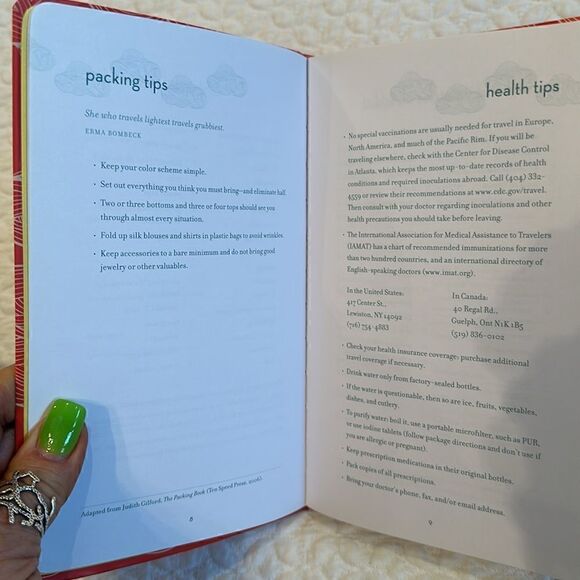 packing tips
She who travels lightest travels grubbiest.
ERMA BOMBECK
• Keep your color scheme simple.
• Set out everything you think you must bring—and eliminate half.
• Two or three bottoms and three or four tops should see you
through almost every situation.
• Fold up silk blouses and shirts in plastic bags to avoid wrinkles.
• Keep accessories to a bare minimum and do not bring good
jewelry or other valuables.
Adapted from Judith Gilford, The Packing Book (Ten Speed Press, 2006).
8
health tips
• No special vaccinations are usually needed for travel in Europe,
North America, and much of the Pacific Rim. If you will be
traveling elsewhere, check with the Center for Disease Control
in Atlanta, which keeps the most up-to-date records of health
conditions and required inoculations abroad. Call (404) 332-
4559 or review their recommendations at www.cdc.gov/travel.
Then consult with your doctor regarding inoculations and other
health precautions you should take before leaving.
• The International Association for Medical Assistance to Travelers
(IAMAT) has a chart of recommended immunizations for more
than two hundred countries, and an international directory of
English-speaking doctors (www.iamat.org).
In the United States:
417 Center St.,
Lewiston, NY 14092
(716) 754-4883
In Canada:
40 Regal Rd.,
Guelph, Ont N1K 1B5
(519) 836-0102
• Check your health insurance coverage; purchase additional
travel coverage if necessary.
• Drink water only from factory-sealed bottles.
• If the water is questionable, then so are ice, fruits, vegetables,
dishes, and cutlery.
• To purify water: boil it, use a portable microfilter, such as PUR,
or use iodine tablets (follow package directions and don't use if
you are allergic or pregnant).
• Keep prescription medications in their original bottles.
• Pack copies of all prescriptions.
• Bring your doctor's phone, fax, and/or email address.
9